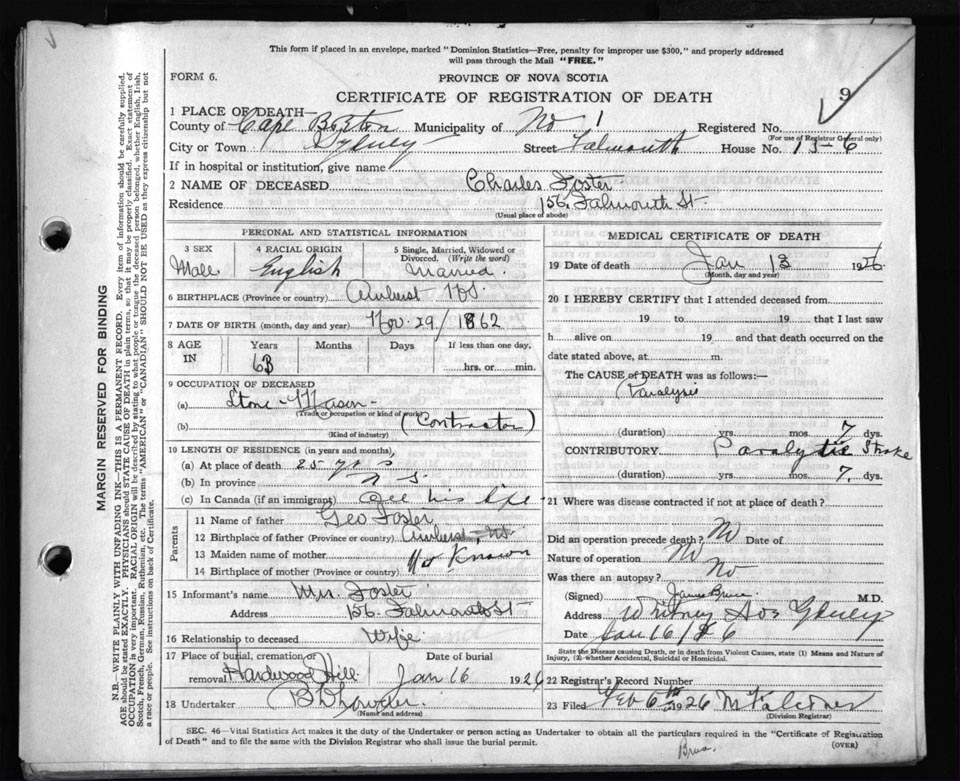 This form if placed in an envelope, marked "Dominion Statistics—Free, penalty for improper use $300," and properly addressed
will pass through the Mail "FREE."
FORM 6.
PROVINCE OF NOVA SCOTIA
CERTIFICATE OF REGISTRATION OF DEATH
9
1 PLACE OF DEATH
County of Cape Breton Municipality of No 1 Registered No.
(For use of Registrar General only)
City or Town Sydney Street Falmouth House No. 156
If in hospital or institution, give name
2 NAME OF DECEASED Charles Foster
Residence 156 Falmouth St.
(Usual place of abode)
PERSONAL AND STATISTICAL INFORMATION
3 SEX 4 RACIAL ORIGIN 5 Single, Married, Widowed or
Divorced. (Write the word)
Male English Married.
6 BIRTHPLACE (Province or country) Amherst NS.
7 DATE OF BIRTH (month, day and year) Nov. 29/1862
8 AGE IN Years Months Days If less than one day,
63 hrs. or min.
9 OCCUPATION OF DECEASED
(a) Stone-Mason
(Trade or occupation or kind of work)
(b) (Contractor)
(Kind of industry)
10 LENGTH OF RESIDENCE (in years and months)
(a) At place of death 25 yrs
(b) In province N S
(c) In Canada (if an immigrant) all his life
Parents
11 Name of father Geo Foster
12 Birthplace of father (Province or country) Amherst, NS
13 Maiden name of mother Not Known
14 Birthplace of mother (Province or country)
15 Informant's name Mrs. Foster
Address 156 Falmouth St
16 Relationship to deceased Wife
17 Place of burial, cremation or Date of burial
removal Hardwood Hill Jan 16 1926
18 Undertaker
(Name and address)
MEDICAL CERTIFICATE OF DEATH
19 Date of death Jan 13 1926
(Month, day and year)
20 I HEREBY CERTIFY that I attended deceased from
19 to 19 that I last saw
h alive on 19 and that death occurred on the
date stated above, at m.
The CAUSE of DEATH was as follows:—
Paralysis
(duration) yrs. mos. 7 dys.
CONTRIBUTORY Paralytic Stroke
(duration) yrs. mos. 7. dys.
21 Where was disease contracted if not at place of death?
Did an operation precede death? No Date of
Nature of operation No
Was there an autopsy? No
(Signed) James Bruce M.D.
Address Whitney Ave Sydney
Date Jan 16/26
State the Disease causing Death, or in death from Violent Causes, state (1) Means and Nature of
Injury, (2) whether Accidental, Suicidal or Homicidal.
22 Registrar's Record Number
23 Filed Feb 6th 1926
(Division Registrar)
SEC. 46—Vital Statistics Act makes it the duty of the Undertaker or person acting as Undertaker to obtain all the particulars required in the "Certificate of Registration
of Death" and to file the same with the Division Registrar who shall issue the burial permit.
(OVER)
MARGIN RESERVED FOR BINDING
N.B.—WRITE PLAINLY WITH UNFADING INK—THIS IS A PERMANENT RECORD. Every item of information should be carefully supplied.
AGE should be stated EXACTLY. PHYSICIANS should STATE CAUSE OF DEATH in plain terms, so that it may be properly classified. Exact statement of
OCCUPATION is very important. RACIAL ORIGIN will be described by stating to what people or tongue the deceased person belonged, whether English, Irish,
Scotch, French, German, Russian, Ruthenian, etc. The terms "AMERICAN" or "CANADIAN" SHOULD NOT BE USED as they express citizenship but not
a race or people. See instructions on back of Certificate.